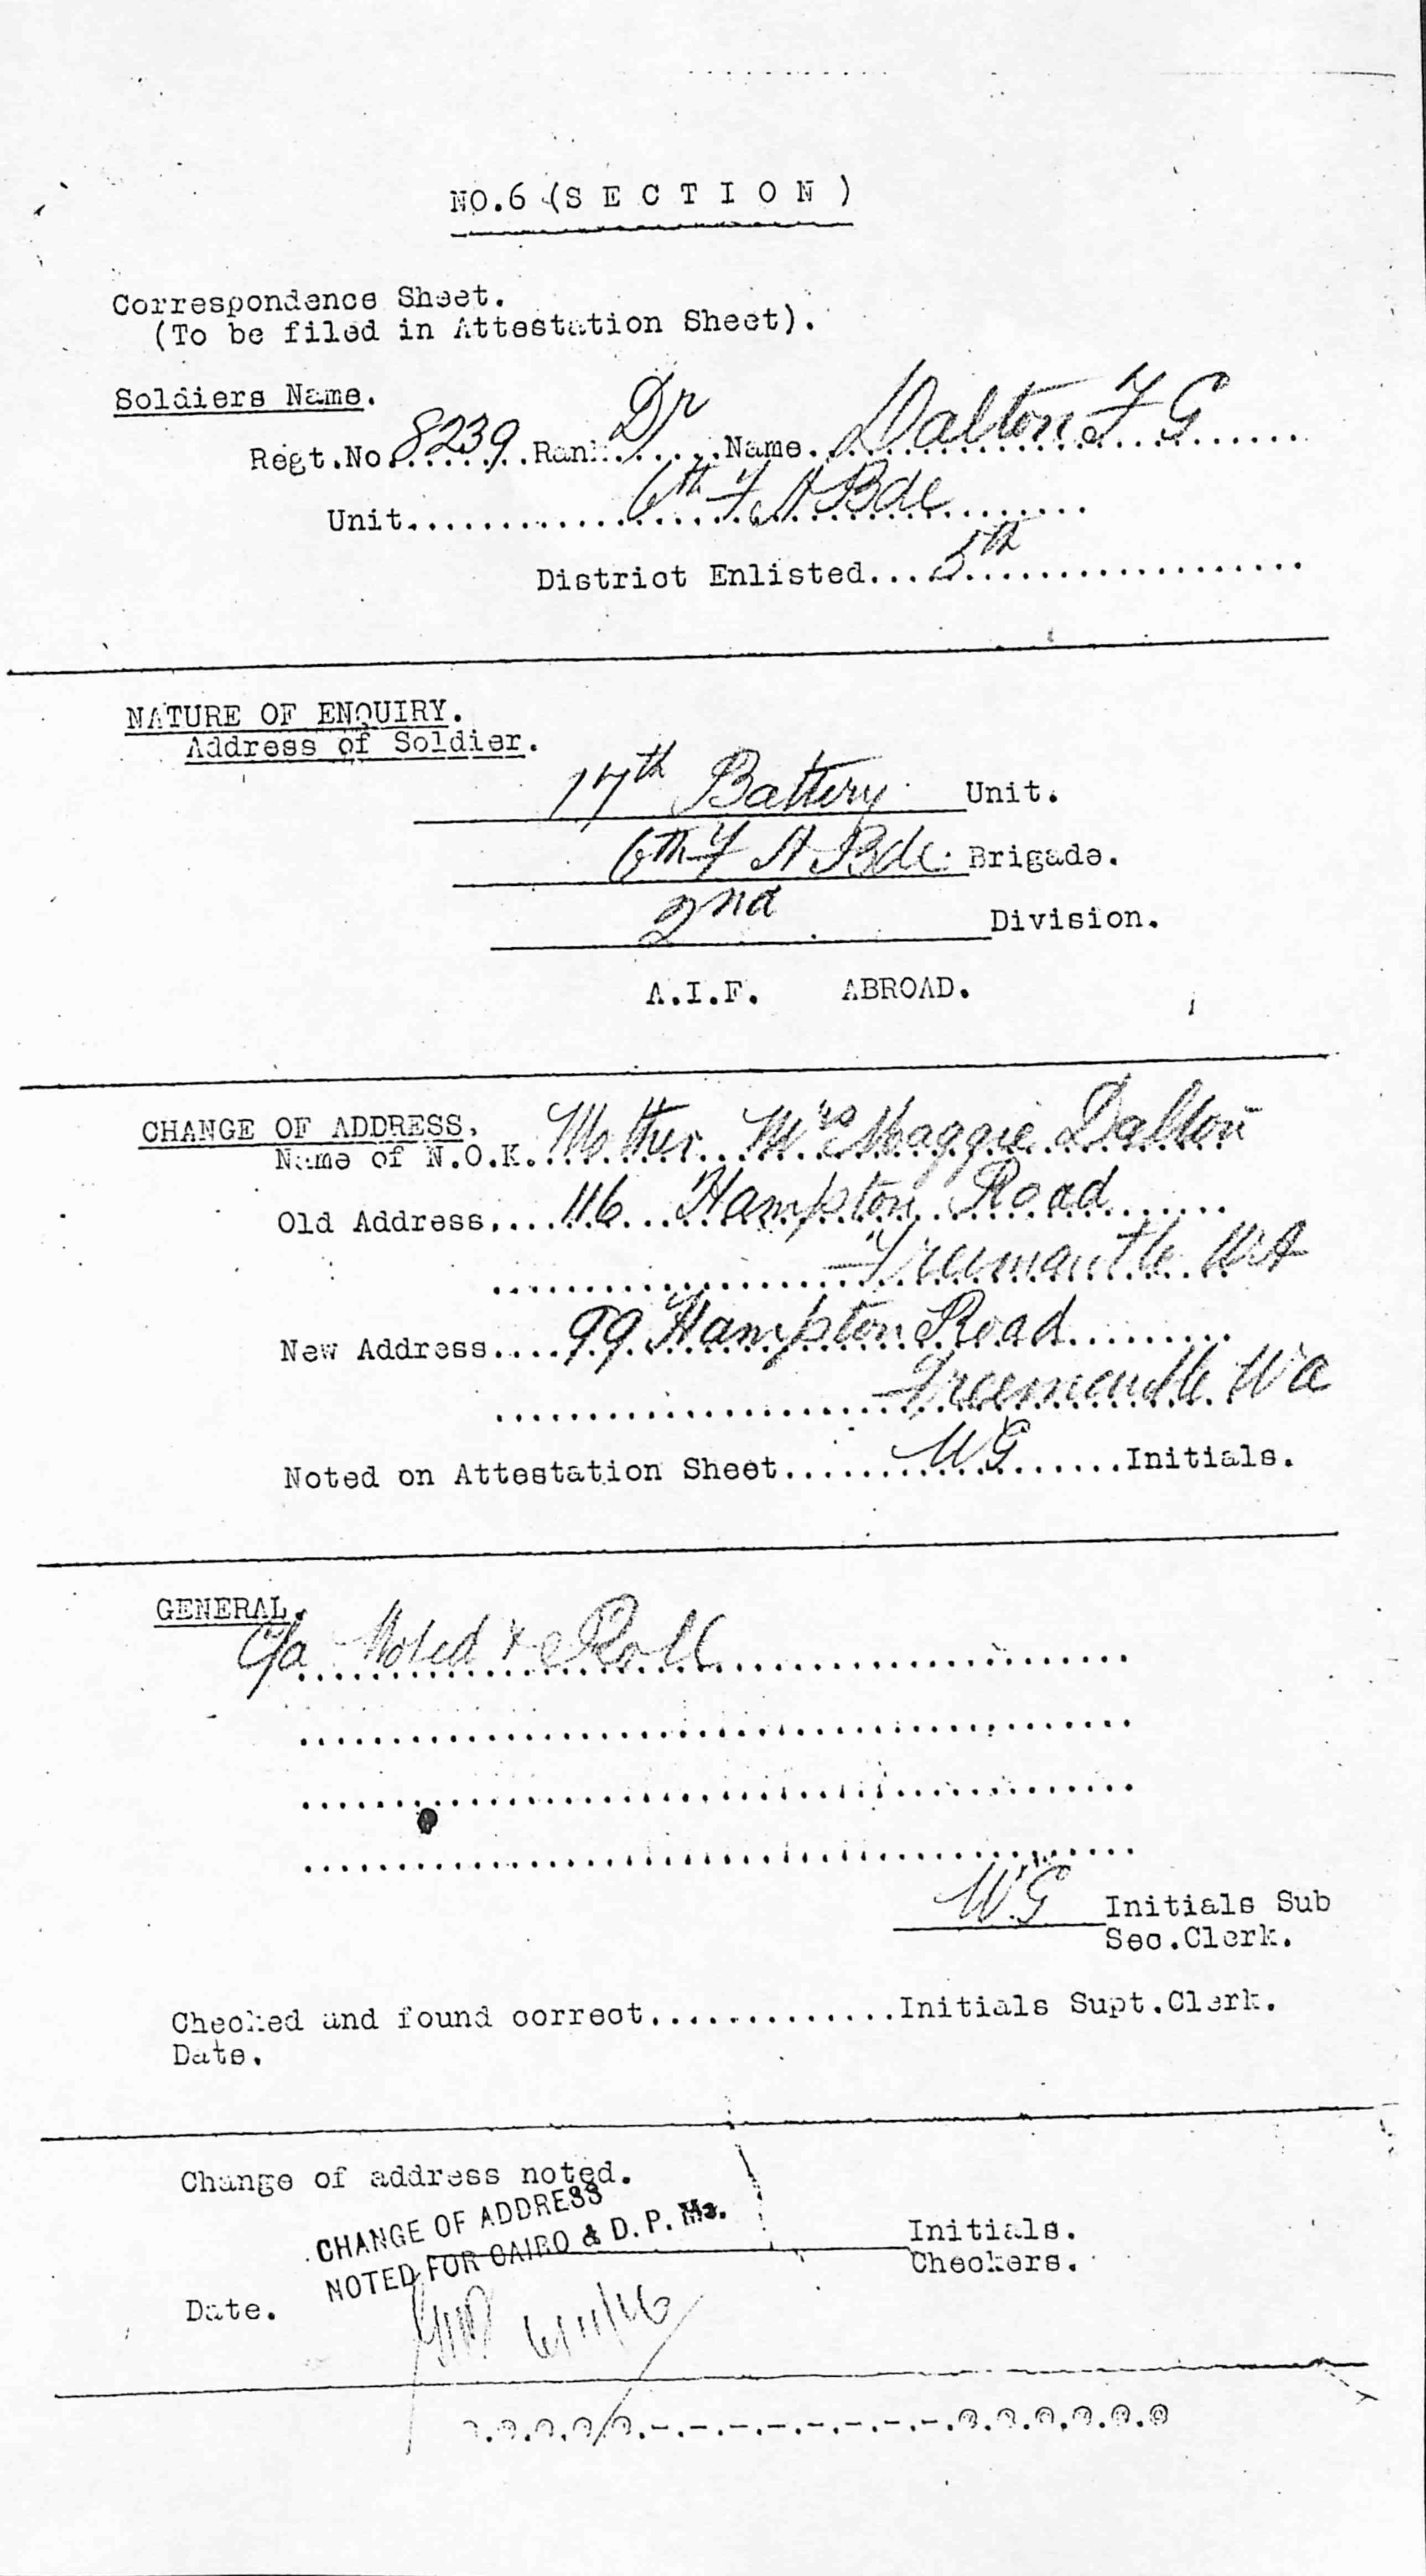 NO.6 (S E C T I O N )
Correspondence Sheet.
(To be filed in Attestation Sheet).
Soldiers Name.
Regt.No.8239..Rank.Dr...Name.Dalton F G
Unit.......6th F A Bde.......
District Enlisted....5th..................
NATURE OF ENQUIRY.
Address of Soldier.
17th Battery Unit.
6th F A Bde. Brigade.
2nd Division.
A.I.F. ABROAD.
CHANGE OF ADDRESS.
Name of N.O.K. Mother Mrs Maggie Dalton
Old Address....116 Hampton Road.......
Freemantle WA
New Address....99 Hampton Road.........
Freemantle Wa
Noted on Attestation Sheet......WG......Initials.
GENERAL.
C/a Noted & Roll
W.G Initials Sub
Sec.Clerk.
Checked and found correct..............Initials Supt.Clerk.
Date.
Change of address noted.
CHANGE OF ADDRESS
NOTED FOR CAIRO & D.P. Ms.
Initials.
Checkers.
Date. 6/11/16